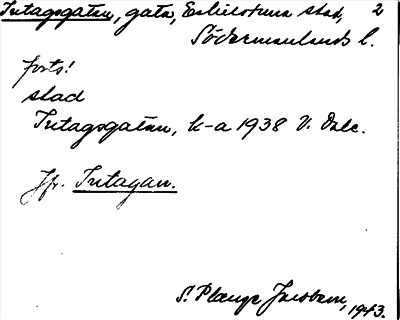 Intagsgatan, gata, Eskilstuna stad, 2
Södermanlands l.
forts!
stad
Intagsgatan, k-a 1938 V. Dalc.
Jfr. Intagan.
S. Plange Jacobson, 1943.